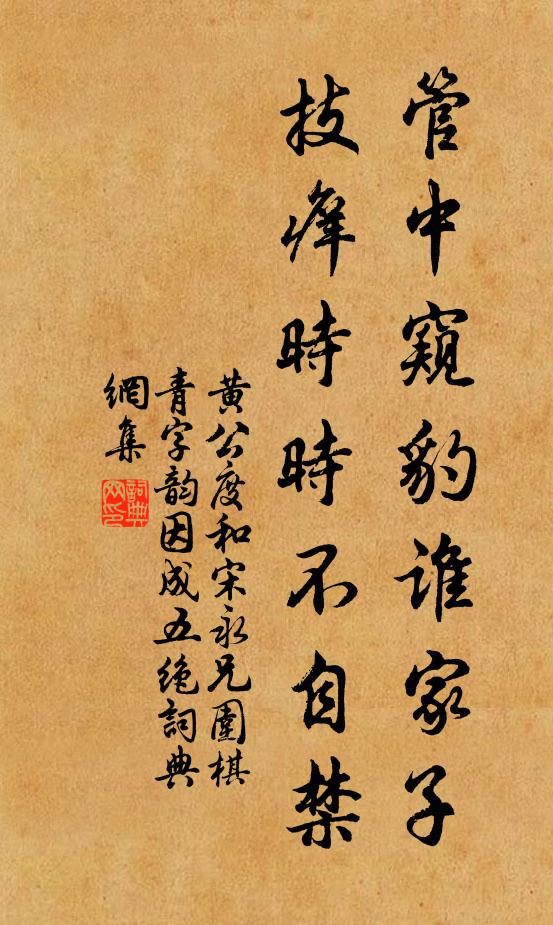 管中窺豹誰家子
技癢時時不自禁
黃公度和宋永兄圍棋
青字韵因成五绝詞典
網集
詞典
网印